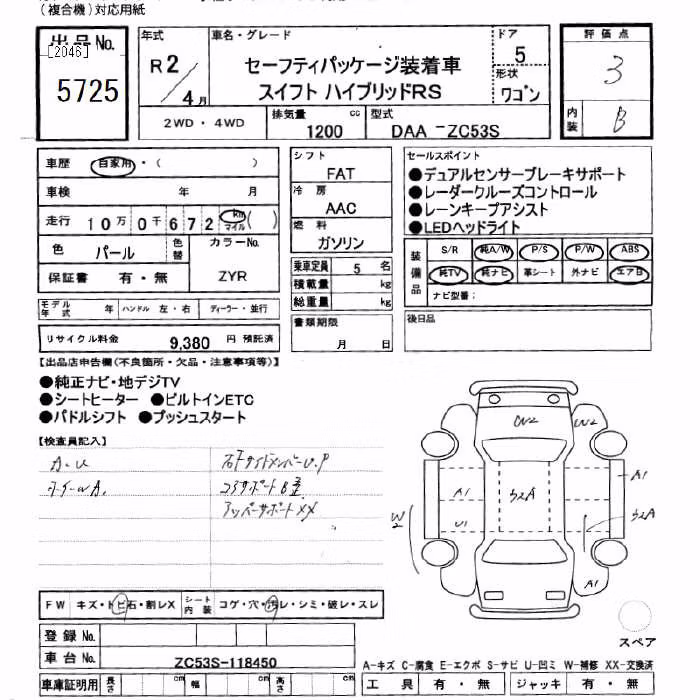 (複合機)対応用紙
出品No.
[2046]
5725
年式
R2/4月
車名・グレード
セーフティパッケージ装着車
スイフト ハイブリッドRS
ドア
5
形状
ワゴン
評価点
3
内装
B
2WD・4WD
排気量
1200 cc
型式
DAA -ZC53S
車歴 自家用・( )
車検 年 月
走行 10万0千672 km マイル ( )
色 パール 色替 カラーNo. ZYR
保証書 有・無
モデル年式 年 ハンドル 左・右 ディーラー・並行
リサイクル料金 9,380 円 預託済
シフト
FAT
冷房
AAC
燃料
ガソリン
乗車定員 5 名
積載量 kg
総重量 kg
書類期限
月 日
セールスポイント
●デュアルセンサーブレーキサポート
●レーダークルーズコントロール
●レーンキープアシスト
●LEDヘッドライト
装備品
S/R 純A/W P/S P/W ABS
純TV 純ナビ 革シート 外ナビ エアB
ナビ型番:
後日品
【出品店申告欄(不良箇所・欠品・注意事項等)】
●純正ナビ・地デジTV
●シートヒーター ●ビルトインETC
●パドルシフト ●プッシュスタート
【検査員記入】
A.U
ホイールA.
右FサイドメンバーU.P
コアサポートB歪
アッパーサポートXX
W2
W2
A1
U1
W2
ヨ2A
A1
ヨ2A
A1
スペア
FW キズ・トビ石・割レX シート内装 コゲ・穴・汚レ・シミ・破レ・スレ
登録No.
車台No. ZC53S-118450
車庫証明用 長さ cm 幅 cm 高さ cm
A-キズ C-腐食 E-エクボ S-サビ U-凹ミ W-補修 XX-交換済
工具 有・無 ジャッキ 有・無